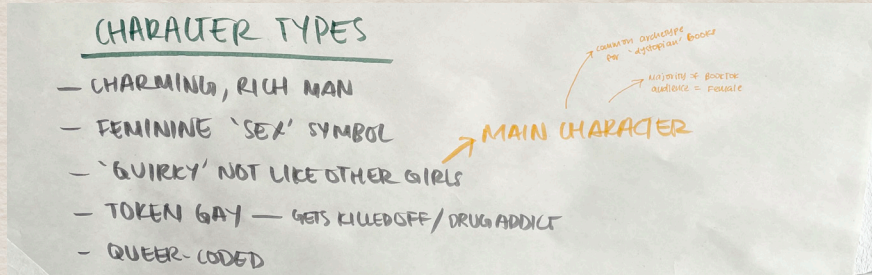 CHARACTER TYPES
– CHARMING, RICH MAN
– FEMININE 'SEX' SYMBOL
– 'QUIRKY' NOT LIKE OTHER GIRLS
– TOKEN GAY — GETS KILLED OFF/DRUG ADDICT
– QUEER-CODED
MAIN CHARACTER
common archetype
for 'dystopian' books
majority of BookTok
audience = female